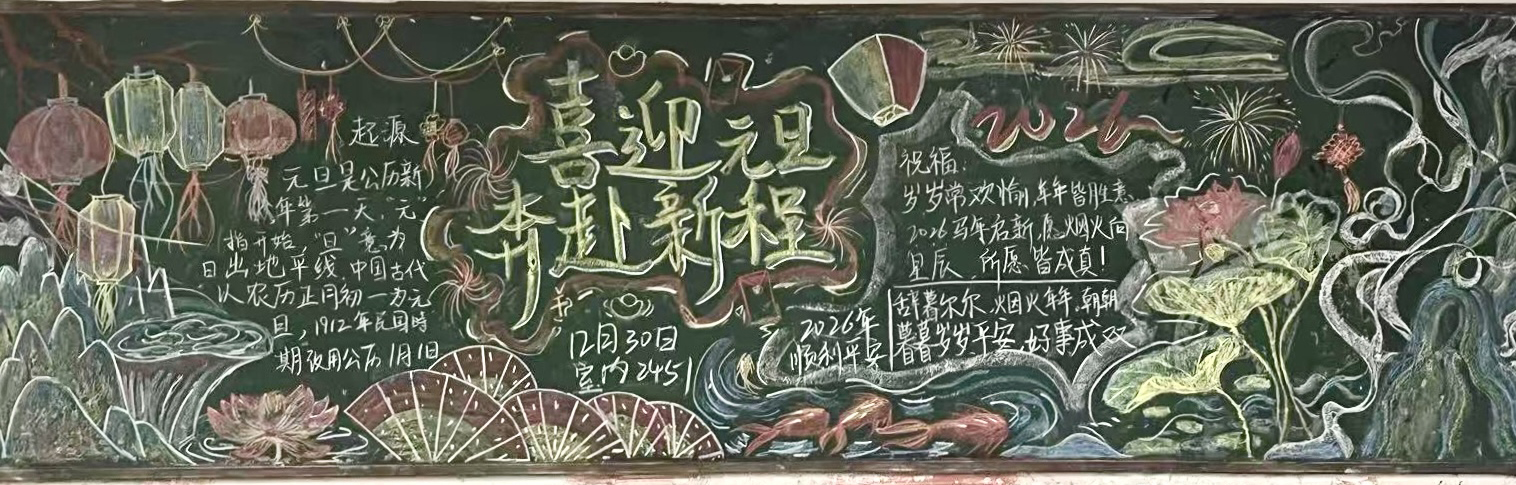 起源
元旦是公历新
年第一天,"元"
指开始,"旦"意为
日出地平线,中国古代
以农历正月初一为元
旦,1912年民国时
期改用公历1月1日
喜迎元旦
奔赴新程
12月30日
室内2451
2026
祝福:
岁岁常欢愉,年年皆胜意
2026马年启新,愿烟火向
星辰,所愿皆成真!
2026年
顺利平安
辞暮尔尔,烟火年年,朝朝
暮暮岁岁平安,好事成双